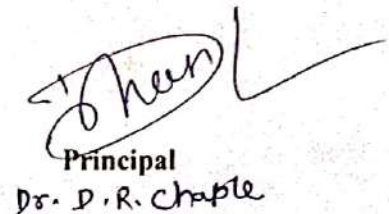 Principal
Dr. D.R. Chaple